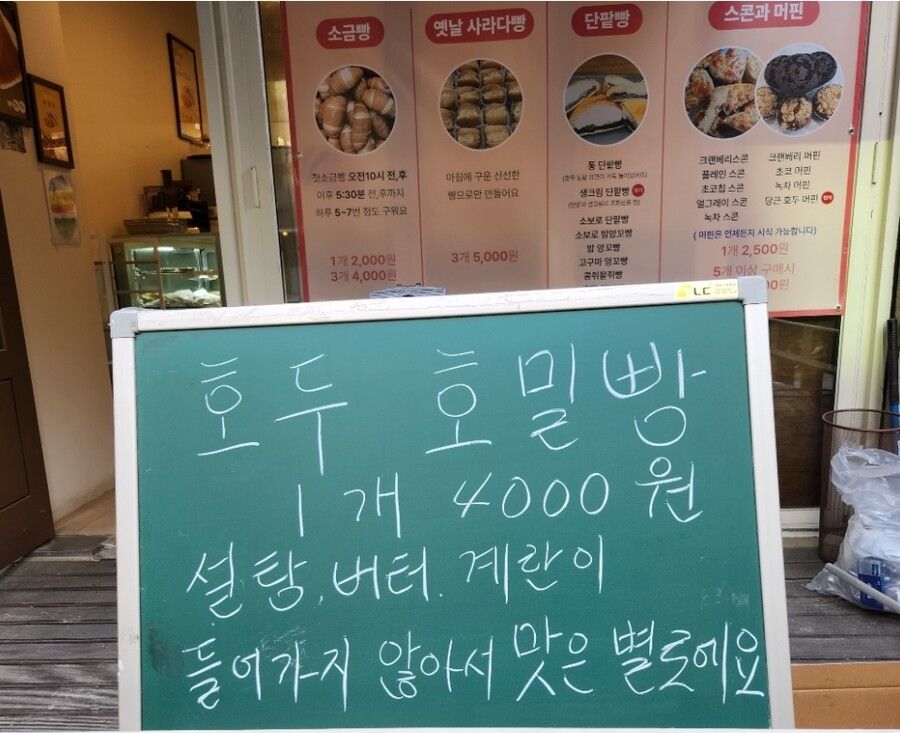 소금빵
첫소금빵 오전10시 전,후
이후 5:30분 전,후까지
하루 5~7번 정도 구워요
1개 2,000원
3개 4,000원
옛날 사라다빵
아침에 구운 신선한
빵으로만 만들어요
3개 5,000원
단팥빵
통 단팥빵
생크림 단팥빵
소보로 단팥빵
소보로 밤앙꼬빵
밤 앙꼬빵
고구마 앙꼬빵
콩쥐팥쥐빵
스콘과 머핀
크랜베리스콘
플레인 스콘
초코칩 스콘
얼그레이 스콘
녹차 스콘
크랜베리 머핀
초코 머핀
녹차 머핀
당근 호두 머핀
( 머핀은 언제든지 시식 가능합니다)
1개 2,500원
5개 이상 구매시
LC
호두 호밀빵
1개 4000원
설탕, 버터. 계란이
들어가지 않아서 맛은 별로에요